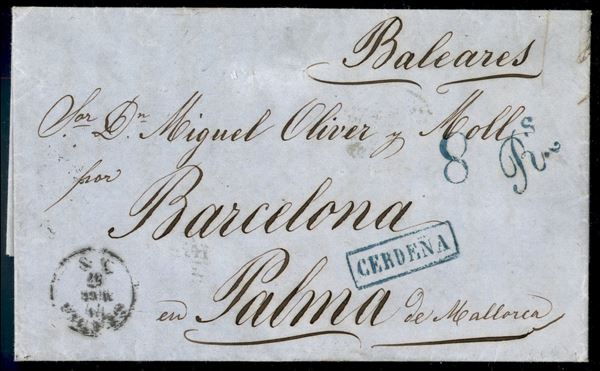 Baleares
Sor Dn Miguel Oliver y Moll
8 Rs
por
Barcelona
CERDEÑA
en Palma de Mallorca